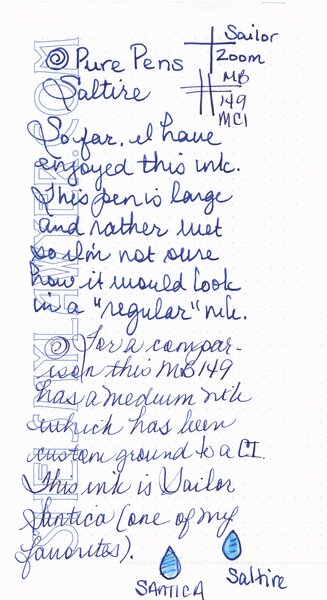 Pure Pens
Saltire
Sailor
Zoom
MB
149
MCI
So far, I have
enjoyed this ink.
This pen is large
and rather wet
so I'm not sure
how it would look
in a "regular" nib.
For a compar-
ison this MB 149
has a medium nib
which has been
custom ground to a CI.
This ink is Sailor
Santica (one of my
favorites).
SANTICA
Saltire